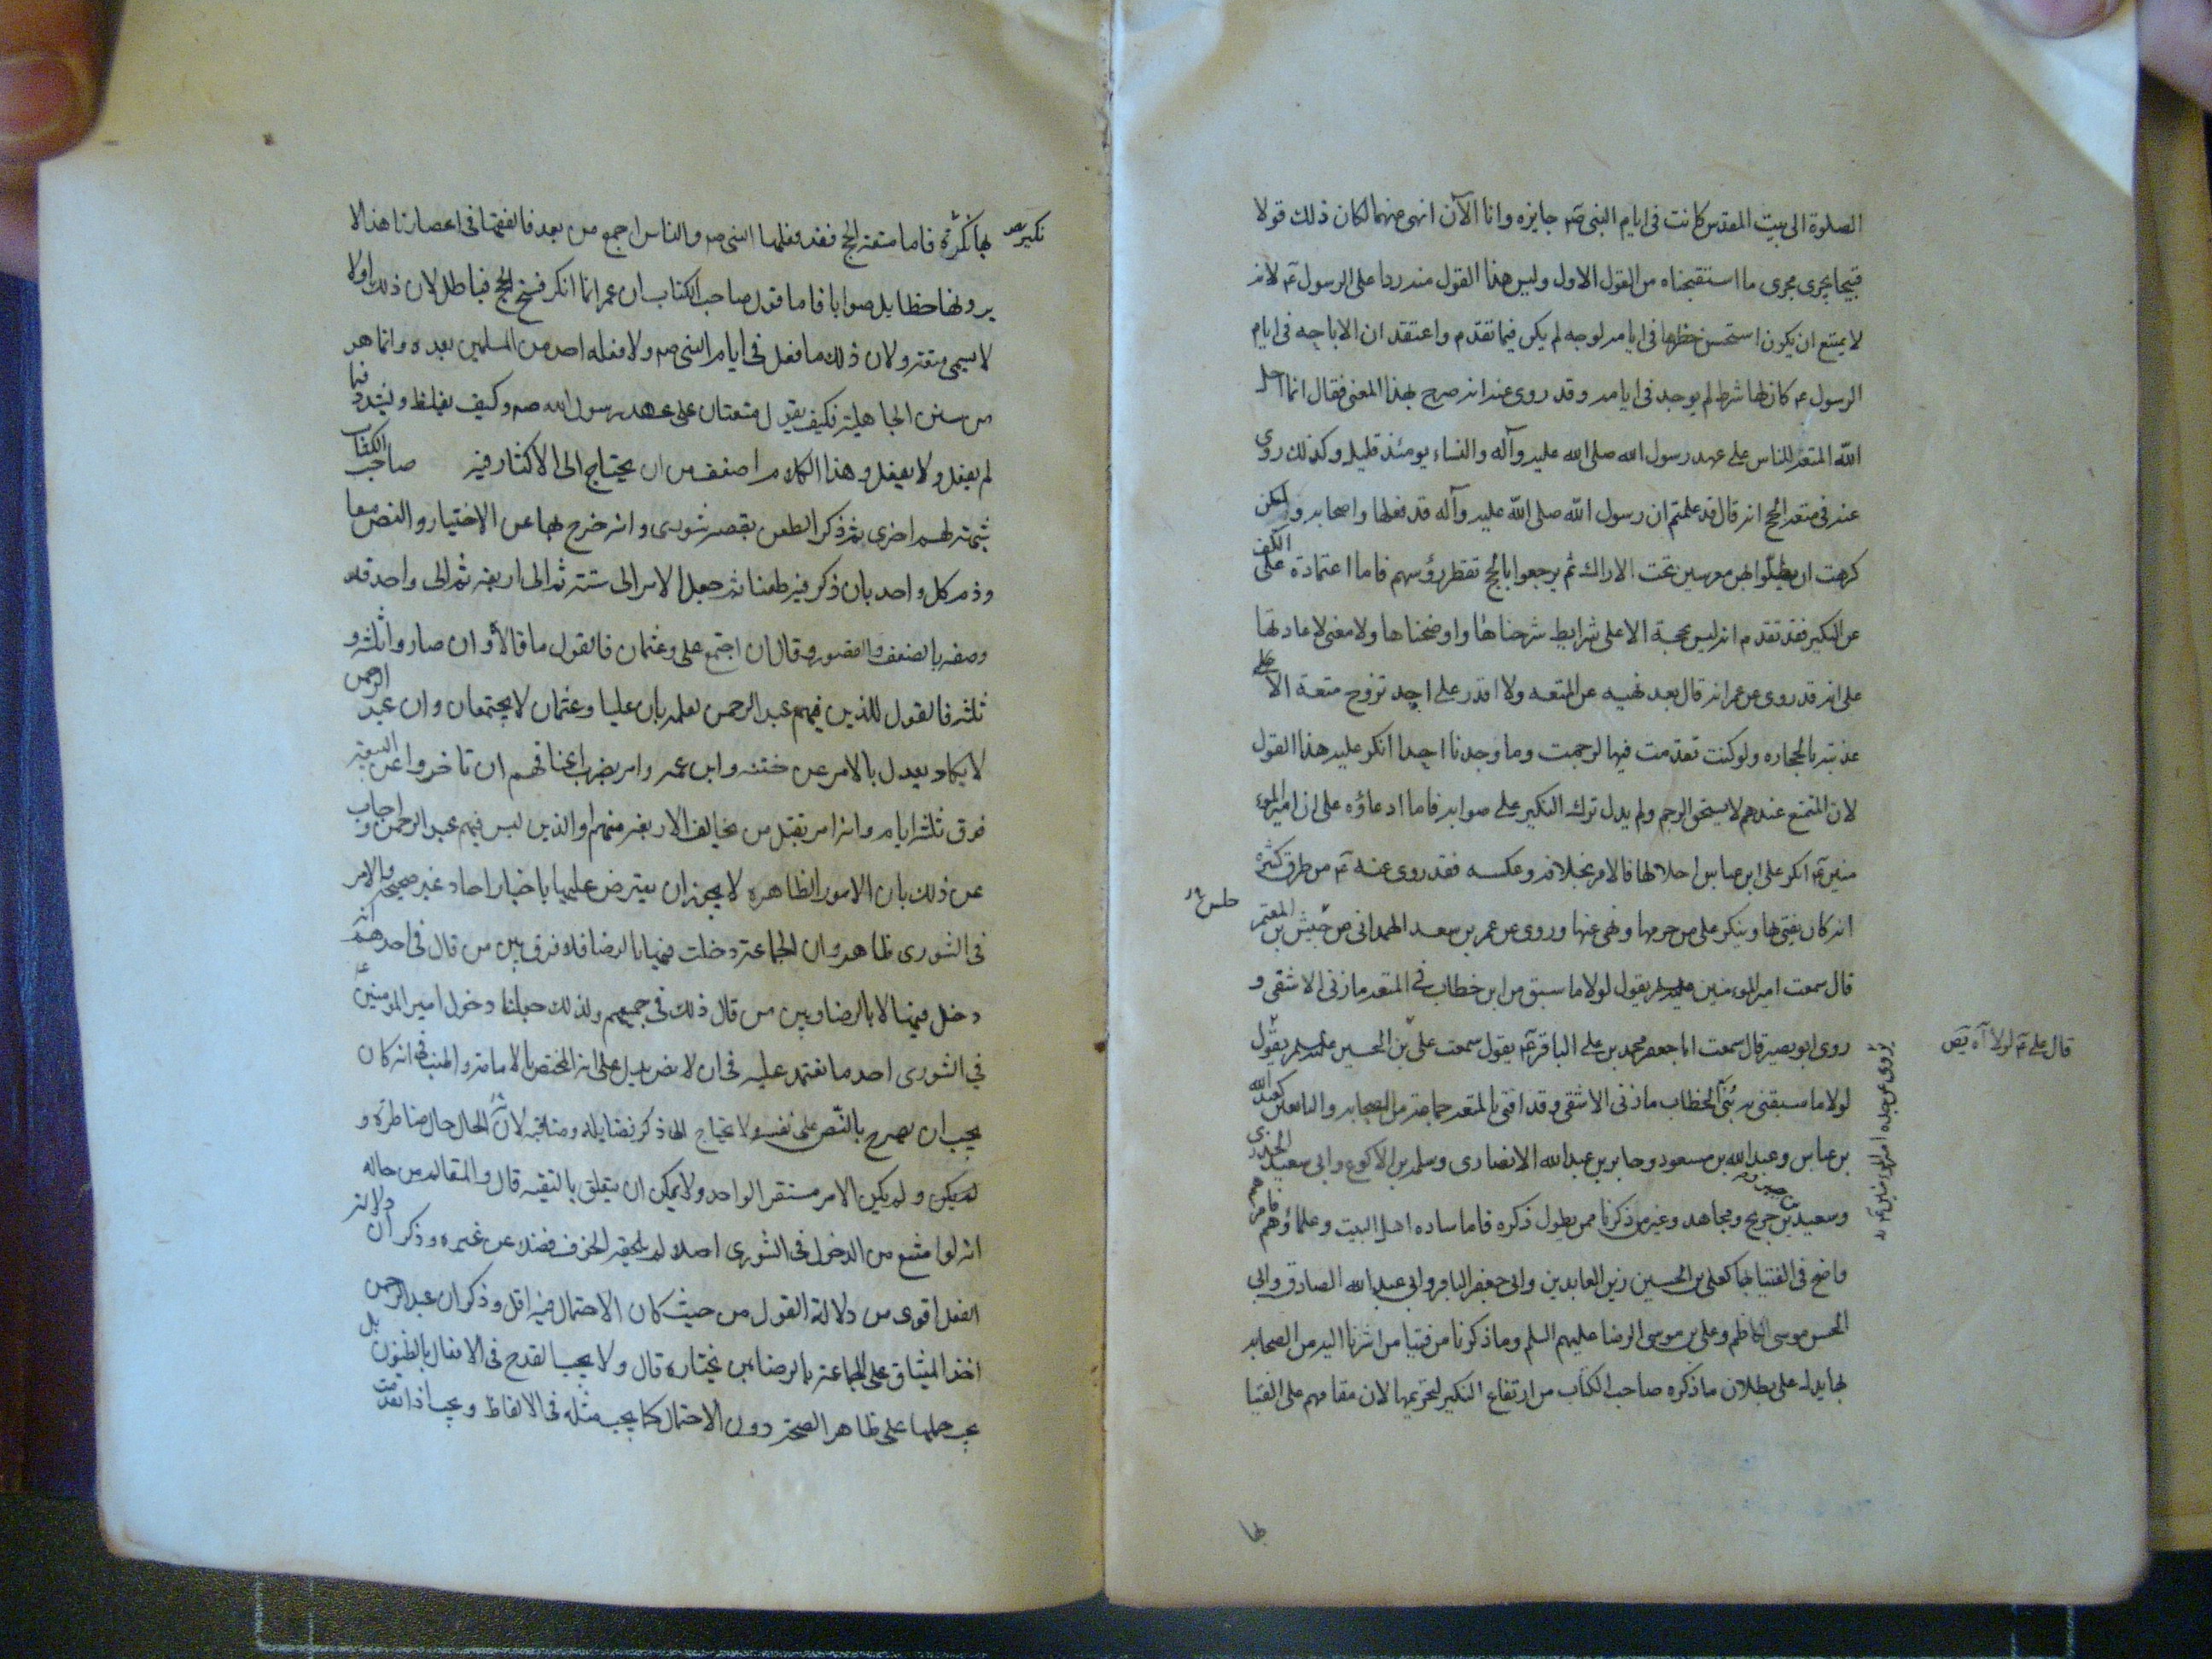 الصلوة الى بيت المقدس كانت فى ايام النبى صم جايزه وانا الآن انهى عنهما لكان ذلك قولا
قبيحا يجرى مجرى ما استقبحناه من القول الاول وليس هذا القول منه ردا على الرسول عم لانه
لا يمتنع ان يكون استحسن حظرها فى ايامه لوجه لم يكن فيما تقدم واعتقد ان الاباحه فى ايام
الرسول عم كان لها شرط لم يوجد فى ايامه وقد روى عنه انه صرح بهذا المعنى فقال انما احل
الله المتعه للناس على عهد رسول الله صلى الله عليه وآله والنساء يومئذ قليل وكذلك روى
عنه فى متعه الحج انه قال قد علمتم ان رسول الله صلى الله عليه وآله قد فعلها واصحابه ولكن
كرهت ان يظلوا بهن معرسين تحت الاراك ثم يرجعوا بالحج تقطر رؤسهم فاما اعتماده على الكف
عن النكير فقد تقدم انه ليس بحجة الا على شرايط شرحناها واوضحناها ولا معنى لاعادتها
على انه قد روى عن عمر انه قال بعد نهيه عن المتعه ولا اقدر على احد تزوج متعة الا
عذبته بالحجاره ولو كنت تقدمت فيها لرجمت وما وجدنا احدا انكر عليه هذا القول
لان المتمتع عندهم لا يستحق الرجم ولم يدل ترك النكير على صوابه فاما ادعاؤه على ان امير المو
منين عم انكر على ابن عباس احلالها فالامر بخلافه وعكسه فقد روى عنه عم من طرق كثيره
انه كان يفتى بها وينكر على من حرمها ونهى عنها وروى عن عمر بن سعد الهمدانى عن حبيش بن المعتمر
قال سمعت امير المومنين يقول لولا ما سبق من ابن خطاب فى المتعه ما زنى الا شقى و
روى ابو بصير قال سمعت ابا جعفر محمد بن على الباقر عم يقول سمعت على بن الحسين يقول
لولا ما سبقنى به بنى الخطاب ما زنى الا شقى وقد افتى بالمتعه جماعة من الصحابه والتابعين كعبد الله
بن عباس وعبد الله بن مسعود وجابر بن عبد الله الانصارى وسلمه بن الاكوع وابى سعيد الخدرى
وسعيد بن جريج ومجاهد وغير من ذكرنا ممن يطول ذكره فاما ساده اهل البيت وعلماؤهم فامرهم
واضح فى الفتيا بها كعلى بن الحسين زين العابدين وابى جعفر الباقر وابى عبد الله الصادق وابى
الحسن موسى الكاظم وعلى بن موسى الرضا عليهم السلم وما ذكرنا من فتيا من اشرنا اليه من الصحابه
بها يدل على بطلان ما ذكره صاحب الكتاب من ارتفاع النكير لتحريمها لان مقامهم على الفتيا
قال على عم لولا
يروى عن جده امير المومنين عم
بها
بها نكره فاما متعه الحج فقد فعلها النبى صم والناس اجمع من بعد فالفقها فى اعصارنا هذا لا
نكير
يرونها خطا بل صوابا فاما قول صاحب الكتاب ان عمر انما انكر فسخ الحج فباطل لان ذلك اولا
لا يسمى متعه ولان ذلك ما فعل فى ايام النبى صم ولا فعله احد من المسلمين بعده وانما هو
من سنن الجاهليه فكيف يقول متعتان على عهد رسول الله صم وكيف يغلظ ويشدد فيما
لم يفعل ولا يفعل وهذا الكلام اضعف من ان يحتاج الى الاكثار فيه صاحب الكتاب
شبهة لهم اخرى ثم ذكر الطعن بقصه شورى وانه خرج بها عن الاختيار والنص معا
وذم كل واحد بان ذكر فيه طعنا ثم جعل الامر الى سته ثم الى اربعه ثم الى واحد قد
وصفه بالضعف والقصور وقال ان اجتمع على وعثمان فالقول ما قالا وان صاروا ثلثه و
ثلثه فالقول للذين فيهم عبد الرحمن لعلمه بان عليا وعثمان لا يجتمعان وان عبد الرحمن
لا يكاد يعدل بالامر عن ختنه وابن عمه وامر بضرب اعناقهم ان تاخروا عن البيعه
فوق ثلثه ايام وانه امر بقتل من يخالف الاربعه منهم او الذين ليس فيهم عبد الرحمن و اجاب
عن ذلك بان الامور الظاهره لا يجوز ان يعترض عليها باخبار احاد غير صحيحه والامر
فى الشورى ظاهر وان الجماعة دخلت فيها بالرضا فلا فرق بين من قال فى احدهم انه
دخل فيها لا بالرضا وبين من قال ذلك فى جميعهم ولذلك جعلنا دخول امير المومنين عم
فى الشورى احد ما نعتمد عليه فى ان لا نص يدل على انه المختص بالامامة والمنبه فى انه كان
يجب ان يصرح بالنص على نفسه ولا يحتاج الى ذكر فضايله ومناقبه لان الحال حال مناظره و
لم يكن ولم يكن الامر مستقر الواحد ولا يمكن ان يتعلق بالتقيه قال والمقاله من حاله
انه لو امتنع من الدخول فى الشورى اصلا لم يلحقه الخوف فضلا عن غيره وذكر ان دلالة
الفعل اقوى من دلالة القول من حيث كان الاحتمال فيه اقل وذكر ان عبد الرحمن
اخذ الميثاق على الجماعة بالرضا بمن يختاره قال ولا يجب القدح فى الافعال بالظنون بل
يجب حملها على ظاهر الصحه دون الاحتمال كما يجب مثله فى الالفاظ ويجب اذا تقدمت